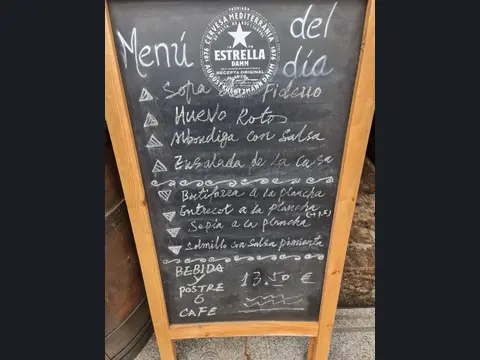 Menú del día
CERVESA MEDITERRÀNIA
1876 1876
ESTRELLA
DAMM
RECEPTA ORIGINAL
AUGUST KUENTZMANN DAMM
Sopa Fideuo
HUEVO Rotos
Albondiga con Salsa
Ensalada de la casa
Butifarra a la plancha
Entrecot a la plancha
Sepia a la plancha
con Salsa pimienta
BEBIDA
Y
POSTRE 13.50 €
ó
CAFE